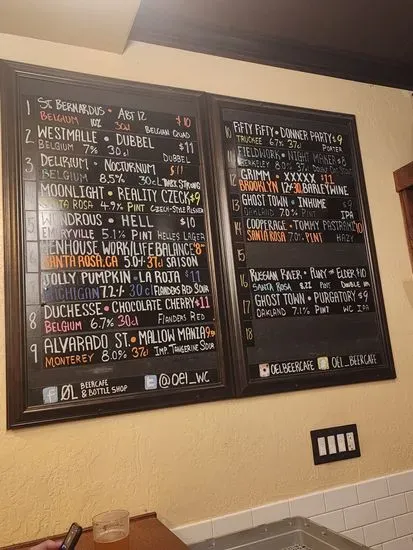 1 ST. BERNARDUS • ABT 12 $11
BELGIUM 10% 30cl BELGIAN QUAD
2 WESTMALLE • DUBBEL $10
BELGIUM 7% 30cl DUBBEL
3 DELIRIUM • NOCTURNUM $11
BELGIUM 8.5% 30cl STRONG
MOONLIGHT • REALITY CZECK $9
SANTA ROSA 4.9% PINT CZECH-STYLE PILSNER
WONDROUS • HELL $10
EMERYVILLE 5.1% PINT HELLES LAGER
HENHOUSE WORK/LIFE BALANCE $8
SANTA ROSA, CA 5.0% 37cl SAISON
JOLLY PUMPKIN • LA ROJA $11
MICHIGAN 7.2% 30cl FLANDERS RED SOUR
8 DUCHESSE • CHOCOLATE CHERRY $11
BELGIUM 6.7% 30cl FLANDERS RED
9 ALVARADO ST. • MALLOW MANIA 9
MONTEREY 8.0% 37cl IMP. TANGERINE SOUR
BEERCAFE & BOTTLE SHOP
@OEL_WC
10 FIFTY FIFTY • DONNER PARTY $9
TRUCKEE 6.7% 37cl PORTER
FIELDWORK • NIGHT MAKER $8
BERKELEY 8.0% 37cl
12 GRIMM • XXXXX $11
BROOKLYN 12% 30cl BARLEYWINE
13 GHOST TOWN • INHUME $9
OAKLAND 7.0% PINT IPA
14 COOPERAGE • TOMMY PASTRAMI $10
SANTA ROSA 7.0% PINT HAZY
15
16 RUSSIAN RIVER • PLINY THE ELDER $10
SANTA ROSA 8.2% PINT DOUBLE IPA
17 GHOST TOWN • PURGATORY $9
OAKLAND 7.1% PINT WC IPA
18
OELBEERCAFE OEL_BEERCAFE